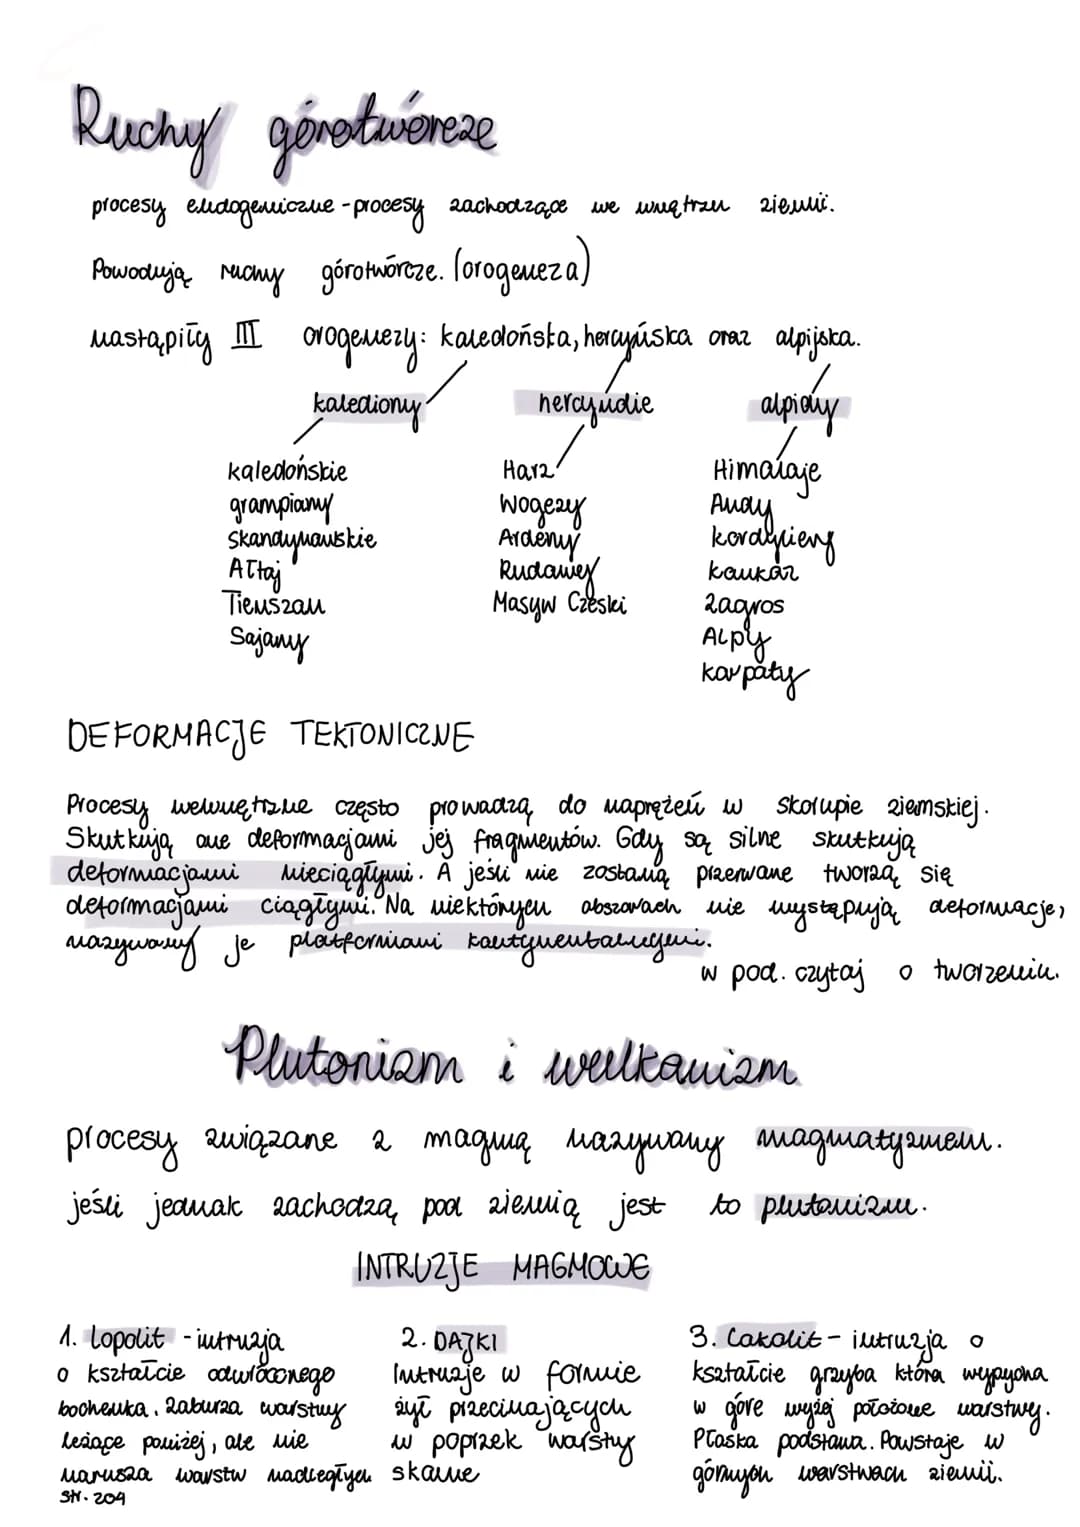 Ruchy górotwórcze
procesy endogeniczne - procesy zachodzące we wnętrzu ziemi.
Powodują ruchy górotwórcze. (orogeneza)
nastąpiły III orogenezy: kaledońska, hercyńska oraz alpijska.
kalediony hercynidie alpidy
kaledońskie Harz Himalaje
grampiany Wogezy Andy
skandynawskie Ardeny kordyliery
Ałtaj Rudawy kaukaz
Tienszan Masyw Czeski zagros
Sajany Alpy
karpaty
DEFORMACJE TEKTONICZNE
Procesy wewnętrzne często prowadzą do naprężeń w skorupie ziemskiej.
Skutkują one deformacjami jej fragmentów. Gdy są silne skutkują
deformacjami nieciągłymi. A jeśli nie zostaną przerwane tworzą się
deformacjami ciągłymi. Na niektórych obszarach nie występują deformacje,
nazywamy je platformami kontynentalnymi.
w pod. czytaj o tworzeniu.
Plutonizm i wulkanizm
procesy związane z magmą nazywany magmatyzmem.
jeśli jednak zachodzą pod ziemią jest to plutonizm.
INTRUZJE MAGMOWE
1. Lopolit - intruzja
o kształcie odwróconego
bochenka. Zaburza warstwy
leżące poniżej, ale nie
narusza warstw nadległych
str. 209
2. DAJKI
Intruzje w formie
żył przecinających
w poprzek warsty
skalne
3. Lakolit - intruzja o
kształcie grzyba która wypycha
w góre wyżej położone warstwy.
Płaska podstawa. Powstaje w
górnych warstwach ziemii.